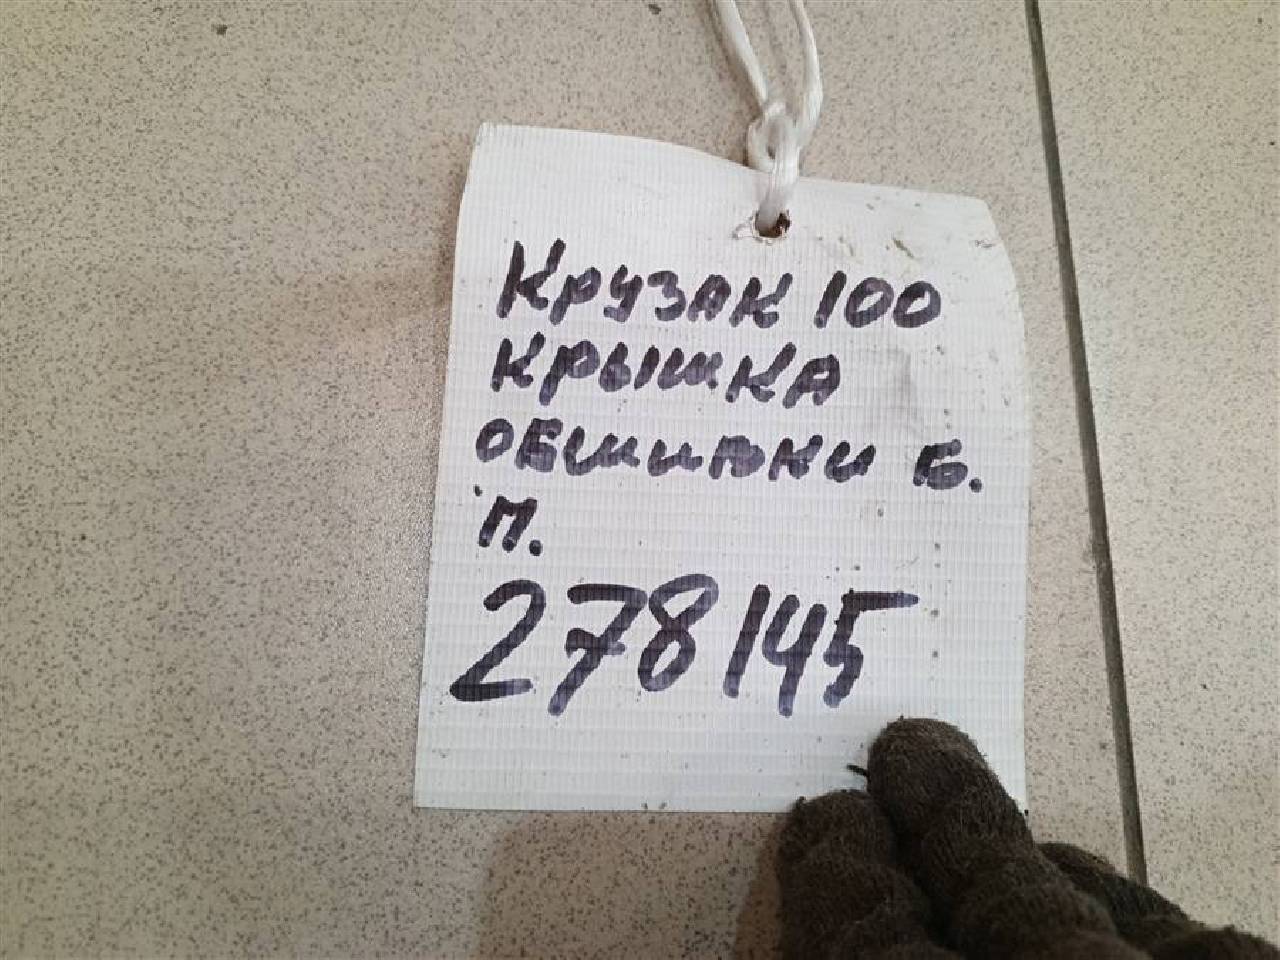 Крузак 100
крышка
обшивки б.
п.
278145